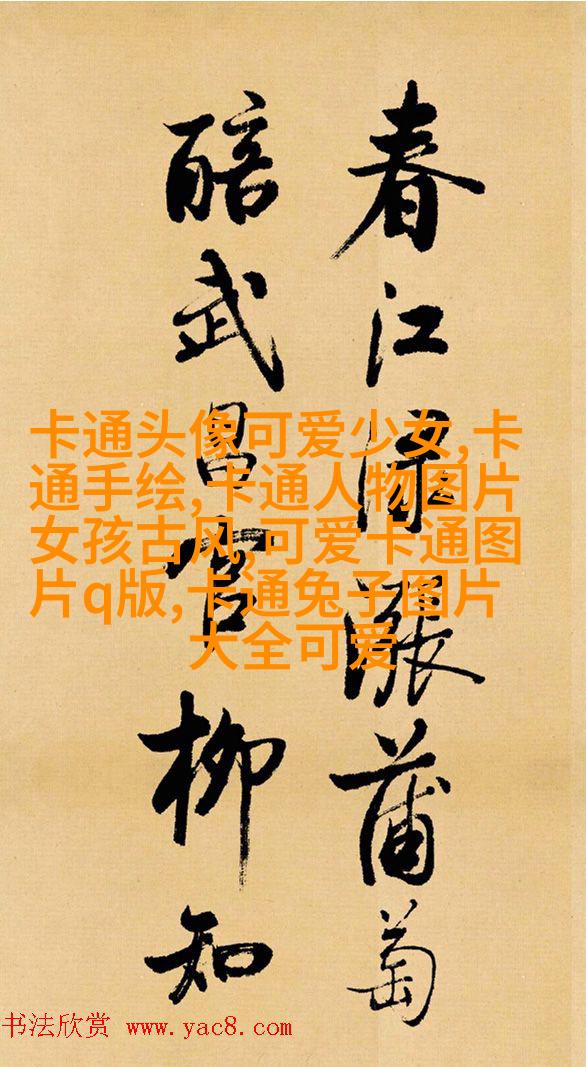 春江渌漲蒲萄
醅武昌官柳知
卡通头像可爱少女,卡
通手绘,卡通人物图片
女孩古风,可爱卡通图
片q版,卡通兔子图片
大全可爱
书法欣赏 www.yac8.com